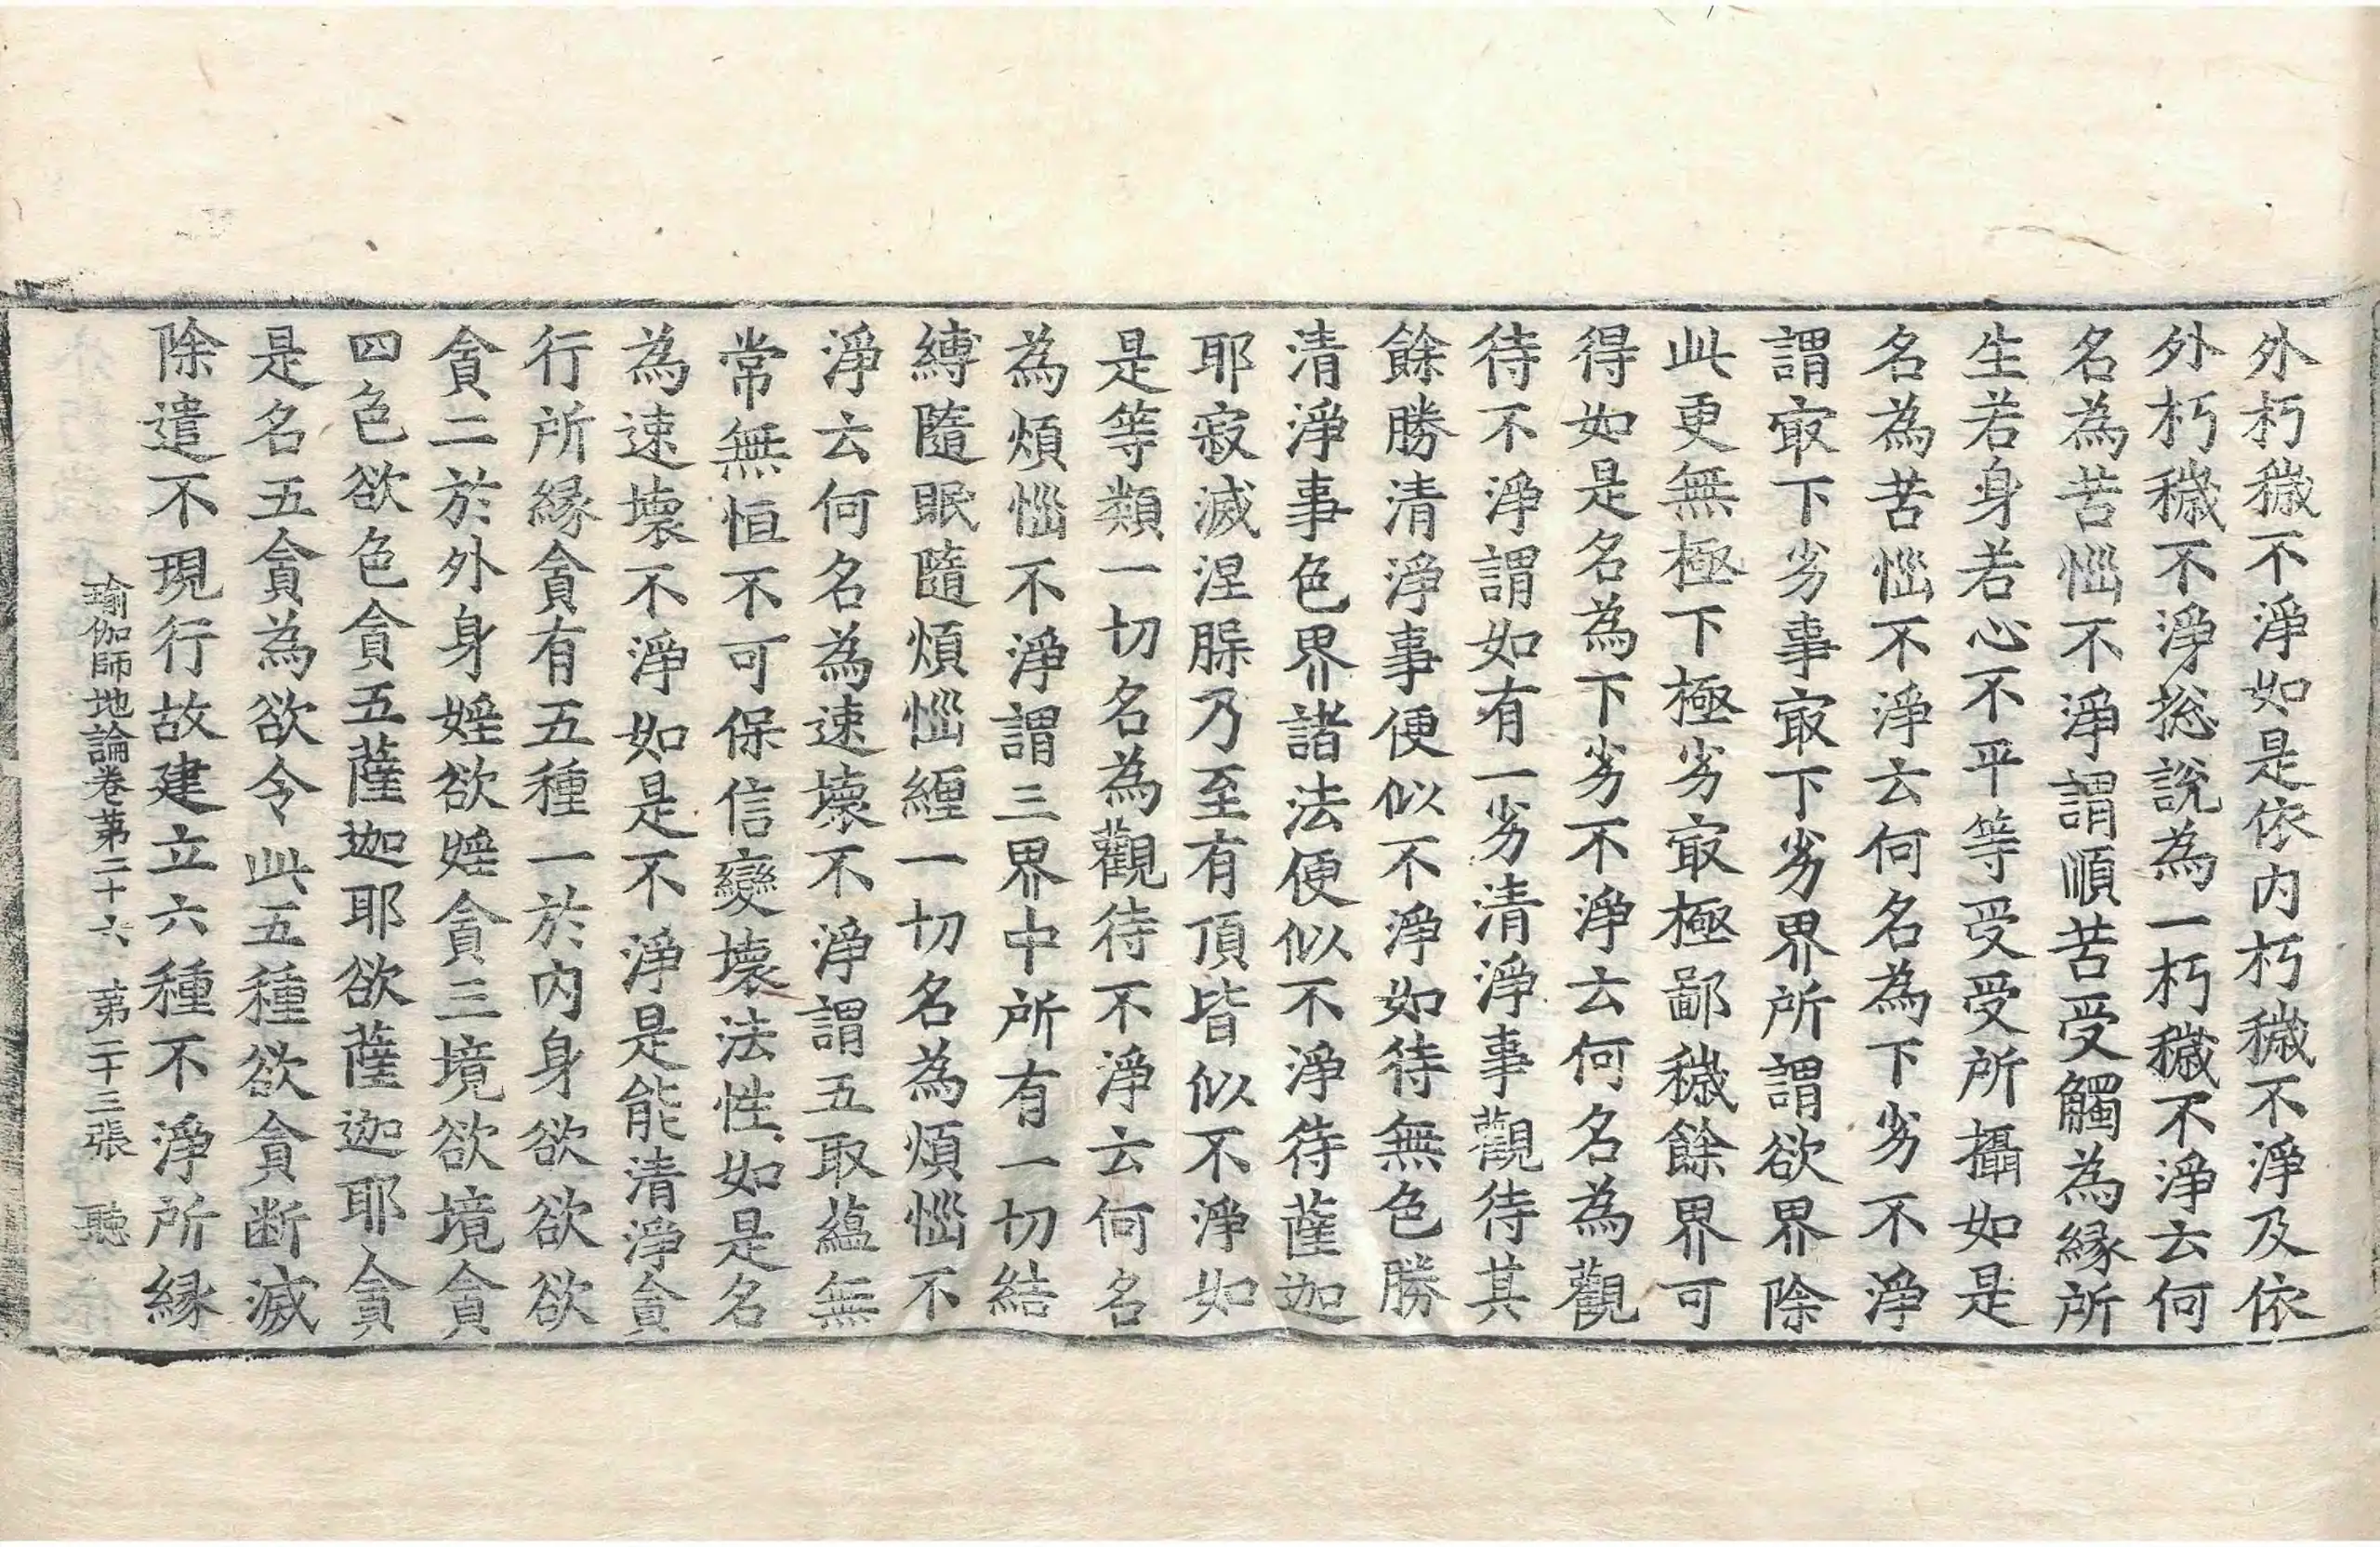 外朽穢不淨如是依內朽穢不淨及依
外朽穢不淨捴說為一朽穢不淨云何
名為苦惱不淨謂順苦受觸為緣所
生若身若心不平等受受所攝如是
名為苦惱不淨云何名為下劣不淨
謂㝡下劣事㝡下劣界所謂欲界除
此更無極下極劣㝡極鄙穢餘界可
得如是名為下劣不淨云何名為觀
待不淨謂如有一劣清淨事觀待其
餘勝清淨事便似不淨如待無色勝
清淨事色界諸法便似不淨待薩迦
耶寂滅涅槃乃至有頂皆似不淨如
是等類一切名為觀待不淨云何名
為煩惱不淨謂三界中所有一切結
縛隨眠隨煩惱纏一切名為煩惱不
淨云何名為速壞不淨謂五取蘊無
常無恒不可保信變壞法性如是名
為速壞不淨如是不淨是能清淨貪
行所緣貪有五種一於內身欲欲欲
貪二於外身婬欲婬貪三境欲境貪
四色欲色貪五薩迦耶欲薩迦耶貪
是名五貪為欲令此五種欲貪断滅
除遣不現行故建立六種不淨所緣
瑜伽師地論卷第二十六 第二十三張 聽